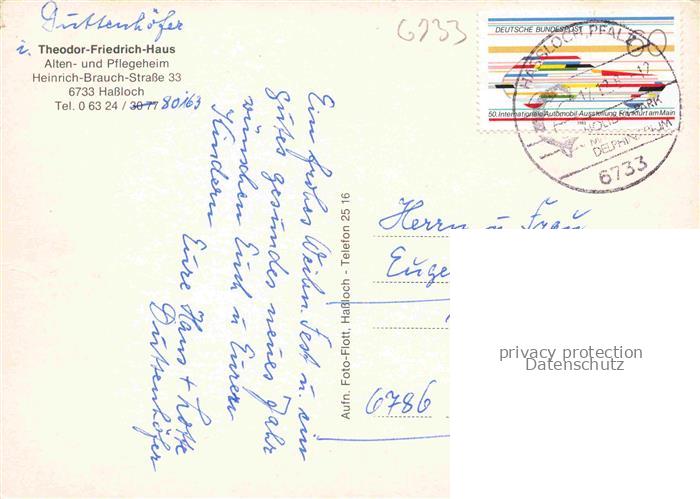 Duttenhöfer
i. Theodor-Friedrich-Haus
Alten- und Pflegeheim
Heinrich-Brauch-Straße 33
6733 Haßloch
Tel. 0 63 24 / 30 77 80163
6733
DEUTSCHE BUNDESPOST
60
50. Internationale Automobil-Ausstellung Frankfurt am Main
HASSLOCH, PFALZ
HOLIDAY PARK
MIT
DELPHINARIUM
6733
Ein frohes Weihn. Fest u. ein
gutes gesundes neues Jahr
wünschen Euch u Euren
Kindern
Eure Hans + Lotte
Duttenhöfer
Aufn. Foto-Flott, Haßloch - Telefon 25 16
Herrn u Frau
Euge
6786
privacy protection
Datenschutz